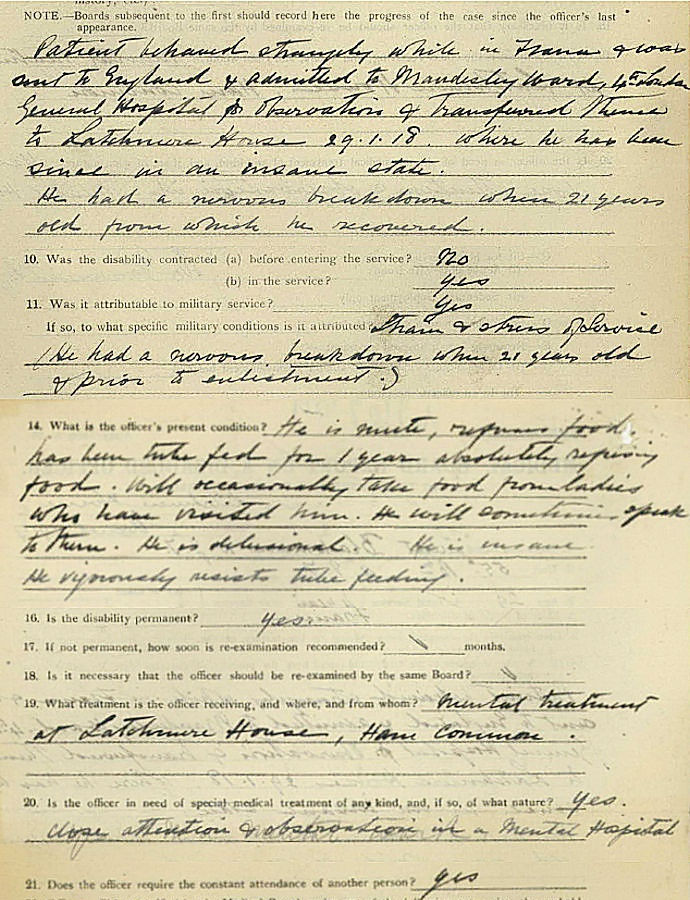 history, etc.).
NOTE.—Boards subsequent to the first should record here the progress of the case since the officer's last
appearance.
Patient behaved strangely while in France & was
sent to England & admitted to Maudesley Ward, 4th London
General Hospital for observation & transferred thence
to Latchmere House 29.1.18. where he has been
since in an insane state.
He had a nervous breakdown when 21 years
old from which he recovered.
10. Was the disability contracted (a) before entering the service? No
(b) in the service? yes
11. Was it attributable to military service? Yes
If so, to what specific military conditions is it attributed Strain & stress of Service
(He had a nervous breakdown when 21 years old
& prior to enlistment.)
14. What is the officer's present condition? He is mute, refuses food,
has been tube fed for 1 year absolutely refusing
food. Will occasionally take food from ladies
who have visited him. He will sometimes speak
to them. He is delusional. He is insane
He vigorously resists tube feeding.
16. Is the disability permanent? yes.
17. If not permanent, how soon is re-examination recommended? months.
18. Is it necessary that the officer should be re-examined by the same Board?
19. What treatment is the officer receiving, and where, and from whom? Mental treatment
at Latchmere House, Ham Common.
20. Is the officer in need of special medical treatment of any kind, and, if so, of what nature? Yes.
close attention & observation in a Mental Hospital
21. Does the officer require the constant attendance of another person? yes